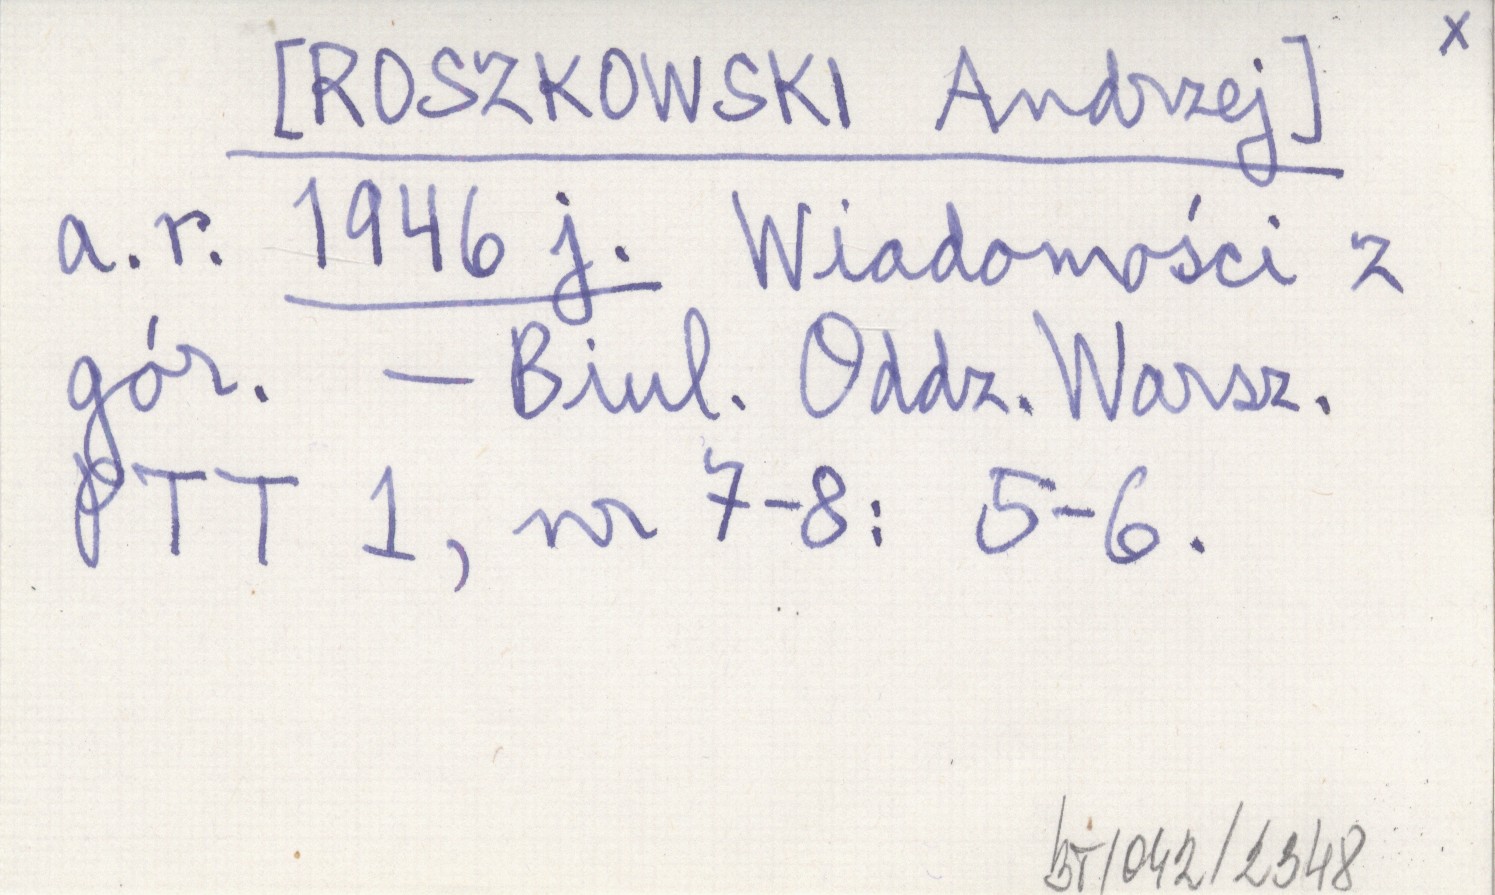 x
[ROSZKOWSKI Andrzej]
a.r. 1946 j. Wiadomości z
gór. — Biul. Oddz. Warsz.
PTT 1, nr 7-8: 5-6.
BT/042/2348